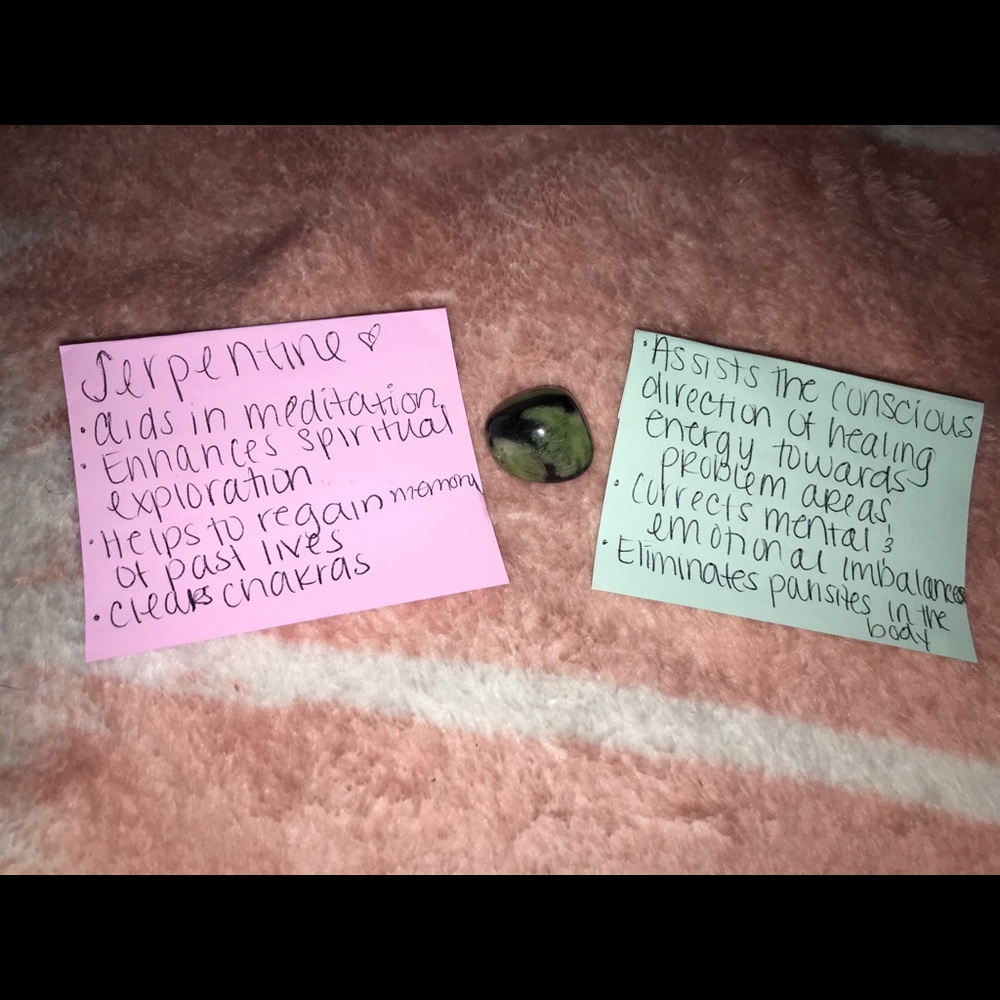 Serpentine ♡
• Aids in meditation
• Enhances spiritual
exploration
• Helps to regain memory
of past lives
• Clears chakras
• Assists the conscious
direction of healing
energy towards
problem areas
• Corrects mental &
emotional imbalances
• Eliminates parisites in the
body